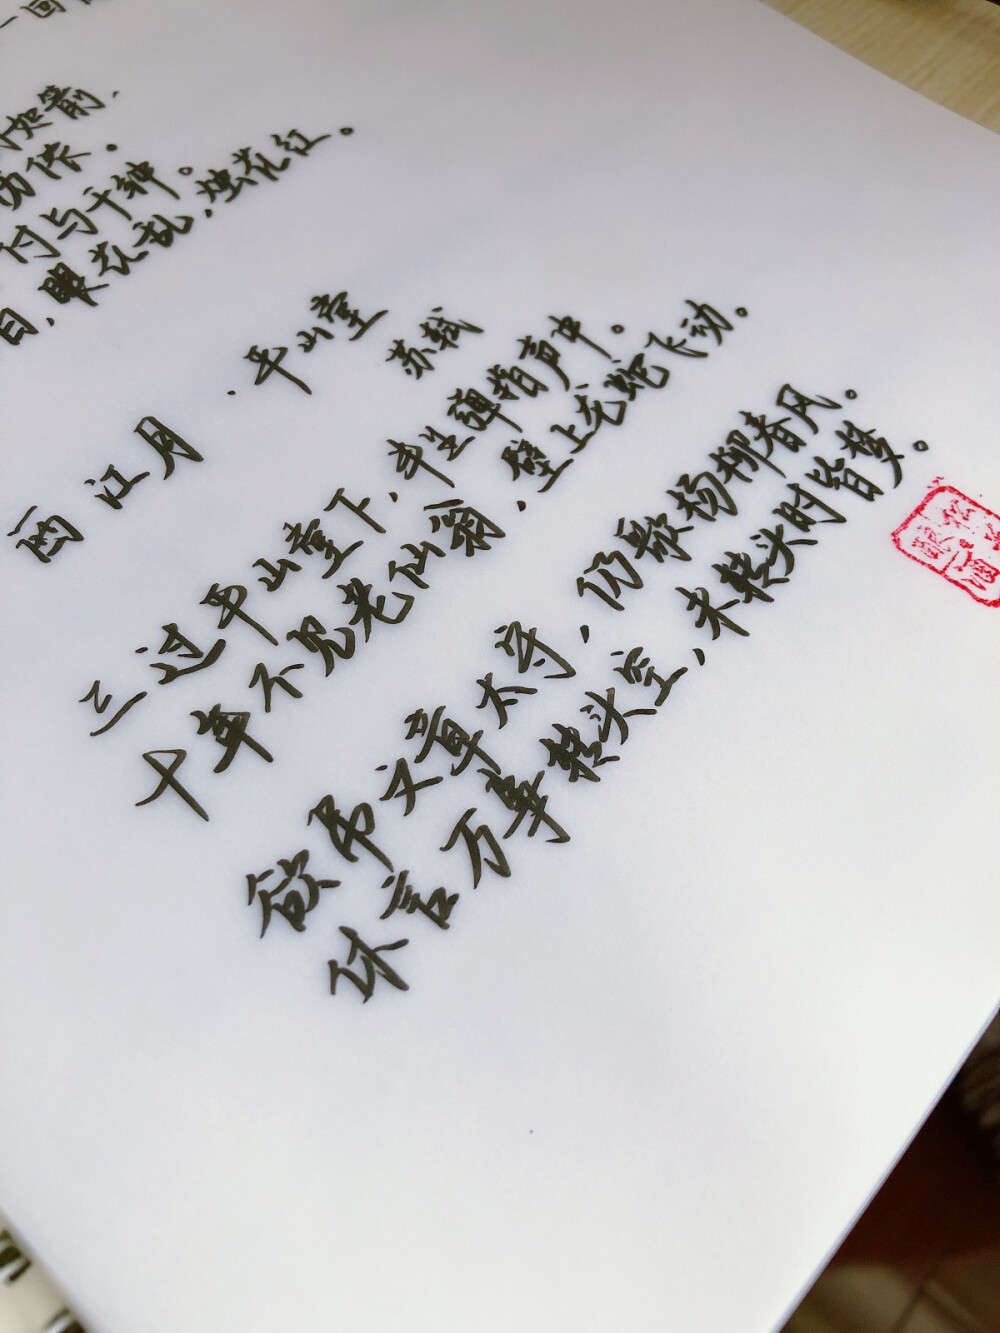 一回
如箭，
付与千钟。
目，眼花乱，烛花红。
西江月·平山堂
苏轼
三过平山堂下，半生弹指声中。
十年不见老仙翁，壁上龙蛇飞动。
欲吊文章太守，仍歌杨柳春风。
休言万事转头空，未转头时皆梦。